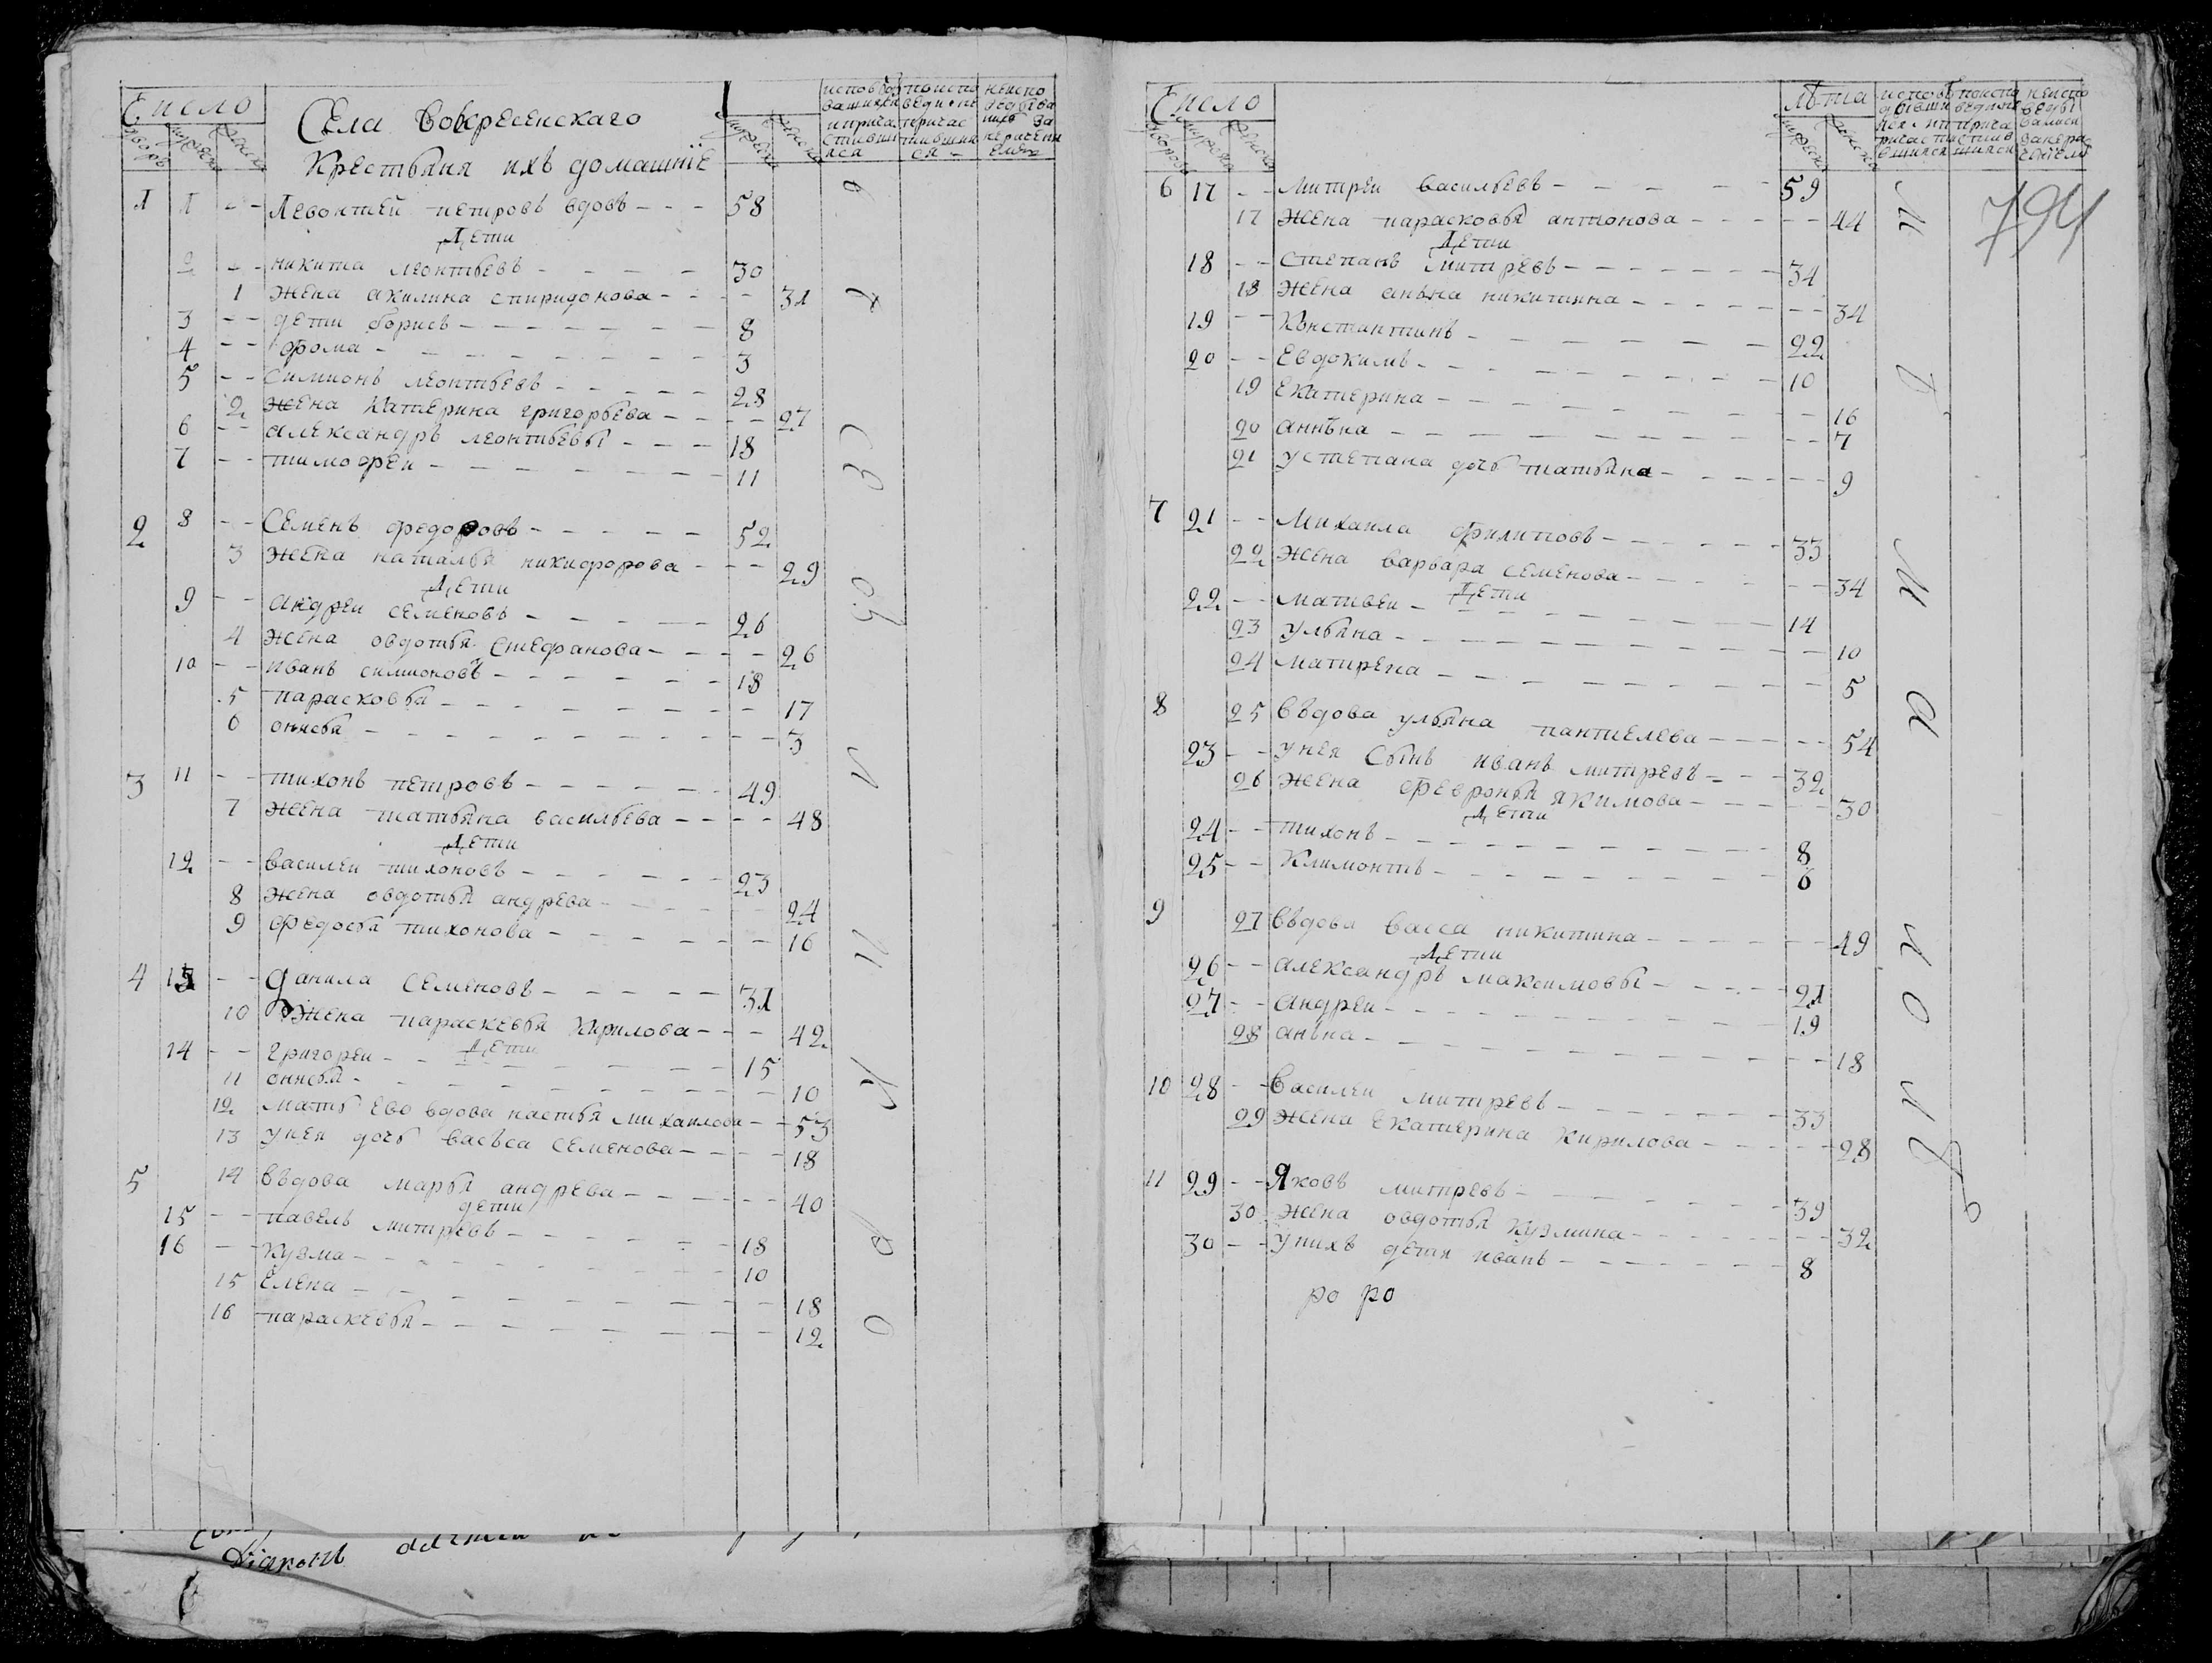 Число
Села воскресенскаго
Крестьяня ихъ домашние
дворовъ мужеска женска
мужеска женска
исповѣдовавшихся и причастившихся
1 1 -- Левонтей петровъ вдовъ --- 58
Дети
2 -- никита леонтьевъ ----- 30
1 жена акилина спиридонова --- 31
3 -- дети борисъ ------- 8
4 -- фома -------- 3
5 -- симионъ леонтьевъ ----- 28
2 жена катерина григорьева ---- 27
6 -- александръ леонтьевы --- 18
7 -- тимофеи ------- 11
2 8 -- Семенъ федоровъ ----- 52
3 жена наталья никифорова --- 29
Дети
9 -- андреи семеновъ ----- 26
4 жена овдотья стефанова ---- 26
10 -- иванъ симионовъ ------ 18
5 парасковья -------- 17
6 онисья ---------- 3
3 11 -- тихонъ петровъ ------ 49
7 жена татьяна васильева ---- 48
Дети
12 -- василеи тихоновъ ------ 23
8 жена овдотья андрева ----- 24
9 федосья тихонова ------ 16
4 13 -- данила семеновъ ----- 31
10 жена параскевья кирилова --- 42
Дети
14 -- григореи -------- 15
11 онисья -------- 10
12 мать ево вдова настья михаилова -- 53
13 унея дочь васьса семенова ---- 18
5 14 вьдова марья андрева ------ 40
дети
15 -- павелъ митревъ ------ 18
16 -- кузма -------- 10
15 елена --------- 18
16 параскевья -------- 12
Диаконъ
Число
лѣта
дворовъ мужеска женска
мужеска женска
794
6 17 -- митреи васильевъ ----- 59
17 жена парасковья антонова ----- 44
Дети
18 -- степанъ митревъ ------- 34
18 жена аньна никитина ------ 34
19 -- Константинъ ------ 22
20 -- Евдокимъ -------- 10
19 Екатерина --------- 16
20 анньна --------- 7
21 устепана дочь татьяна ------ 9
7 21 -- Михаила филиповъ ------ 33
22 жена варвара семенова ------ 34
Дети
22 -- матвеи -------- 14
23 ульяна --------- 10
24 матрена --------- 5
8 25 вьдова ульяна пантелева ----- 54
23 -- унея сынъ иванъ митревъ --- 32
26 жена февронья якимова ----- 30
Дети
24 -- тихонъ --------- 8
25 -- Климонтъ -------- 6
9 27 вьдова васса никитина ------ 49
Дети
26 -- александръ максимовы ----- 21
27 -- андреи --------- 19
28 аньна ---------- 18
10 28 -- василеи митревъ ------ 33
29 жена екатерина кирилова ----- 28
11 29 -- яковъ митревъ ------ 39
30 жена овдотья кузмина ------ 32
30 -- унихъ детя иванъ ------ 8
ро ро